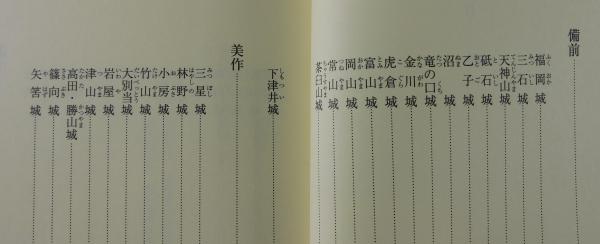 備前
福岡城
三石城
天神山城
砥石城
乙子城
沼城
竜の口城
金川城
虎倉城
富山城
岡山城
常山城
茶臼山城
下津井城
美作
三星城
林野城
小房城
竹山城
大別当城
岩屋城
津山城
高田・勝山城
篠向城
矢筈城